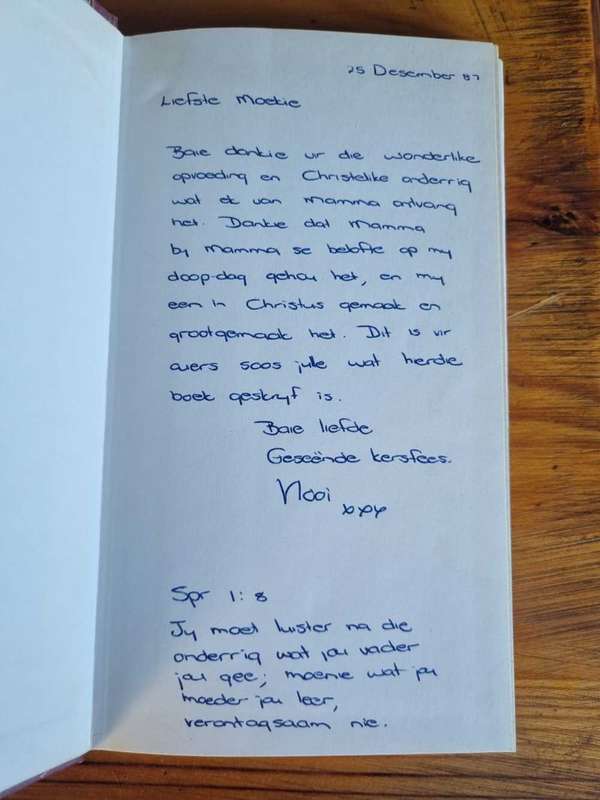 25 Desember 87
Liefste Moekie
Baie dankie vir die wonderlike
opvoeding en Christelike onderrig
wat ek van Mamma ontvang
het. Dankie dat Mamma
by Mamma se belofte op my
doop-dag gehou het, en my
een in Christus gemaak en
grootgemaak het. Dit is vir
ouers soos julle wat hierdie
boek geskryf is.
Baie liefde
Geseënde kersfees.
Nooi
xxx
Spr 1:8
Jy moet luister na die
onderrig wat jou vader
jou gee; moenie wat jou
moeder jou leer,
verontagsaam nie.